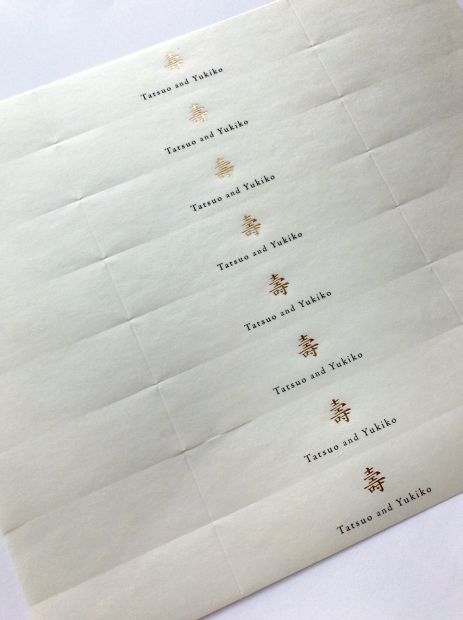 壽
Tatsuo and Yukiko
壽
Tatsuo and Yukiko
壽
Tatsuo and Yukiko
壽
Tatsuo and Yukiko
壽
Tatsuo and Yukiko
壽
Tatsuo and Yukiko
壽
Tatsuo and Yukiko
壽
Tatsuo and Yukiko